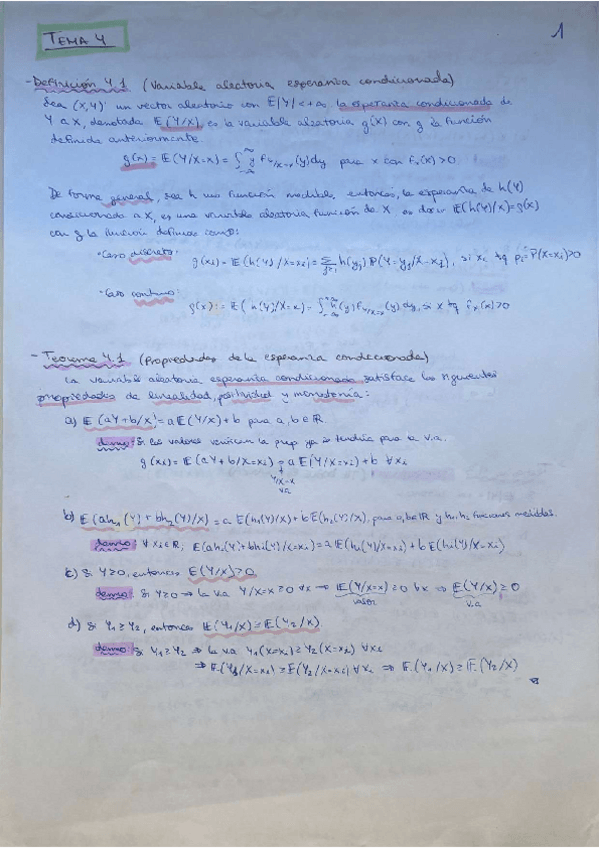 TEMA 4
1
- Definición 4.1 (Variable aleatoria esperanza condicionada)
Sea (X,Y) un vector aleatorio con E|Y|<+∞. la esperanza condicionada de
Y a X, denotada E(Y/X) es la variable aleatoria g(X) con g la función
definida anteriormente.
g(x) = E(Y/X=x) = ∫_{-∞}^{∞} y f_{Y/X=x}(y)dy para x con f_X(x)>0
De forma general, sea h una función medible, entonces, la esperanza de h(Y)
condicionada a X, es una variable aleatoria función de X, es decir E(h(Y)/X)=g(X)
con g la función definida como:
• Caso discreto:
g(xi) = E(h(Y)/X=xi) = Σ_{j≥1} h(yj) P(Y=yj/X=xi), si xi tq pi=P(X=xi)>0
• Caso continuo:
g(x) = E(h(Y)/X=x) = ∫_{-∞}^{+∞} h(y) f_{Y/X=x}(y)dy, si x tq f_X(x)>0
- Teorema 4.1 (Propiedades de la esperanza condicionada)
La variable aleatoria esperanza condicionada satisface las siguientes
propiedades de linealidad, positividad y monotonía:
a) E(aY+b/X)=aE(Y/X)+b para a,b∈R.
demo: Si los valores verifican la prop ya la tendría para la v.a.
g(xi) = E(aY+b/X=xi) = a E(Y/X=xi)+b ∀xi
Y/X=x
v.a.
b) E(ah1(Y)+bh2(Y)/X)=a E(h1(Y)/X)+bE(h2(Y)/X), para a,b∈R y h1,h2 funciones medibles.
demo: ∀xi∈R, E(ah1(Y)+bh2(Y)/X=xi)=aE(h1(Y)/X=xi)+bE(h2(Y)/X=xi)
c) Si Y≥0, entonces E(Y/X)≥0
demo: Si Y≥0 ⇒ la v.a Y/X=x≥0 ∀x ⇒ E(Y/X=x)≥0 ∀x ⇒ E(Y/X)≥0
valor
v.a.
d) Si Y1≥Y2, entonces E(Y1/X)≥E(Y2/X)
demo: Si Y1≥Y2 ⇒ la v.a Y1(X=xi)≥Y2(X=xi) ∀xi
⇒ E(Y1/X=xi)≥E(Y2/X=xi) ∀xi ⇒ E(Y1/X)≥E(Y2/X)